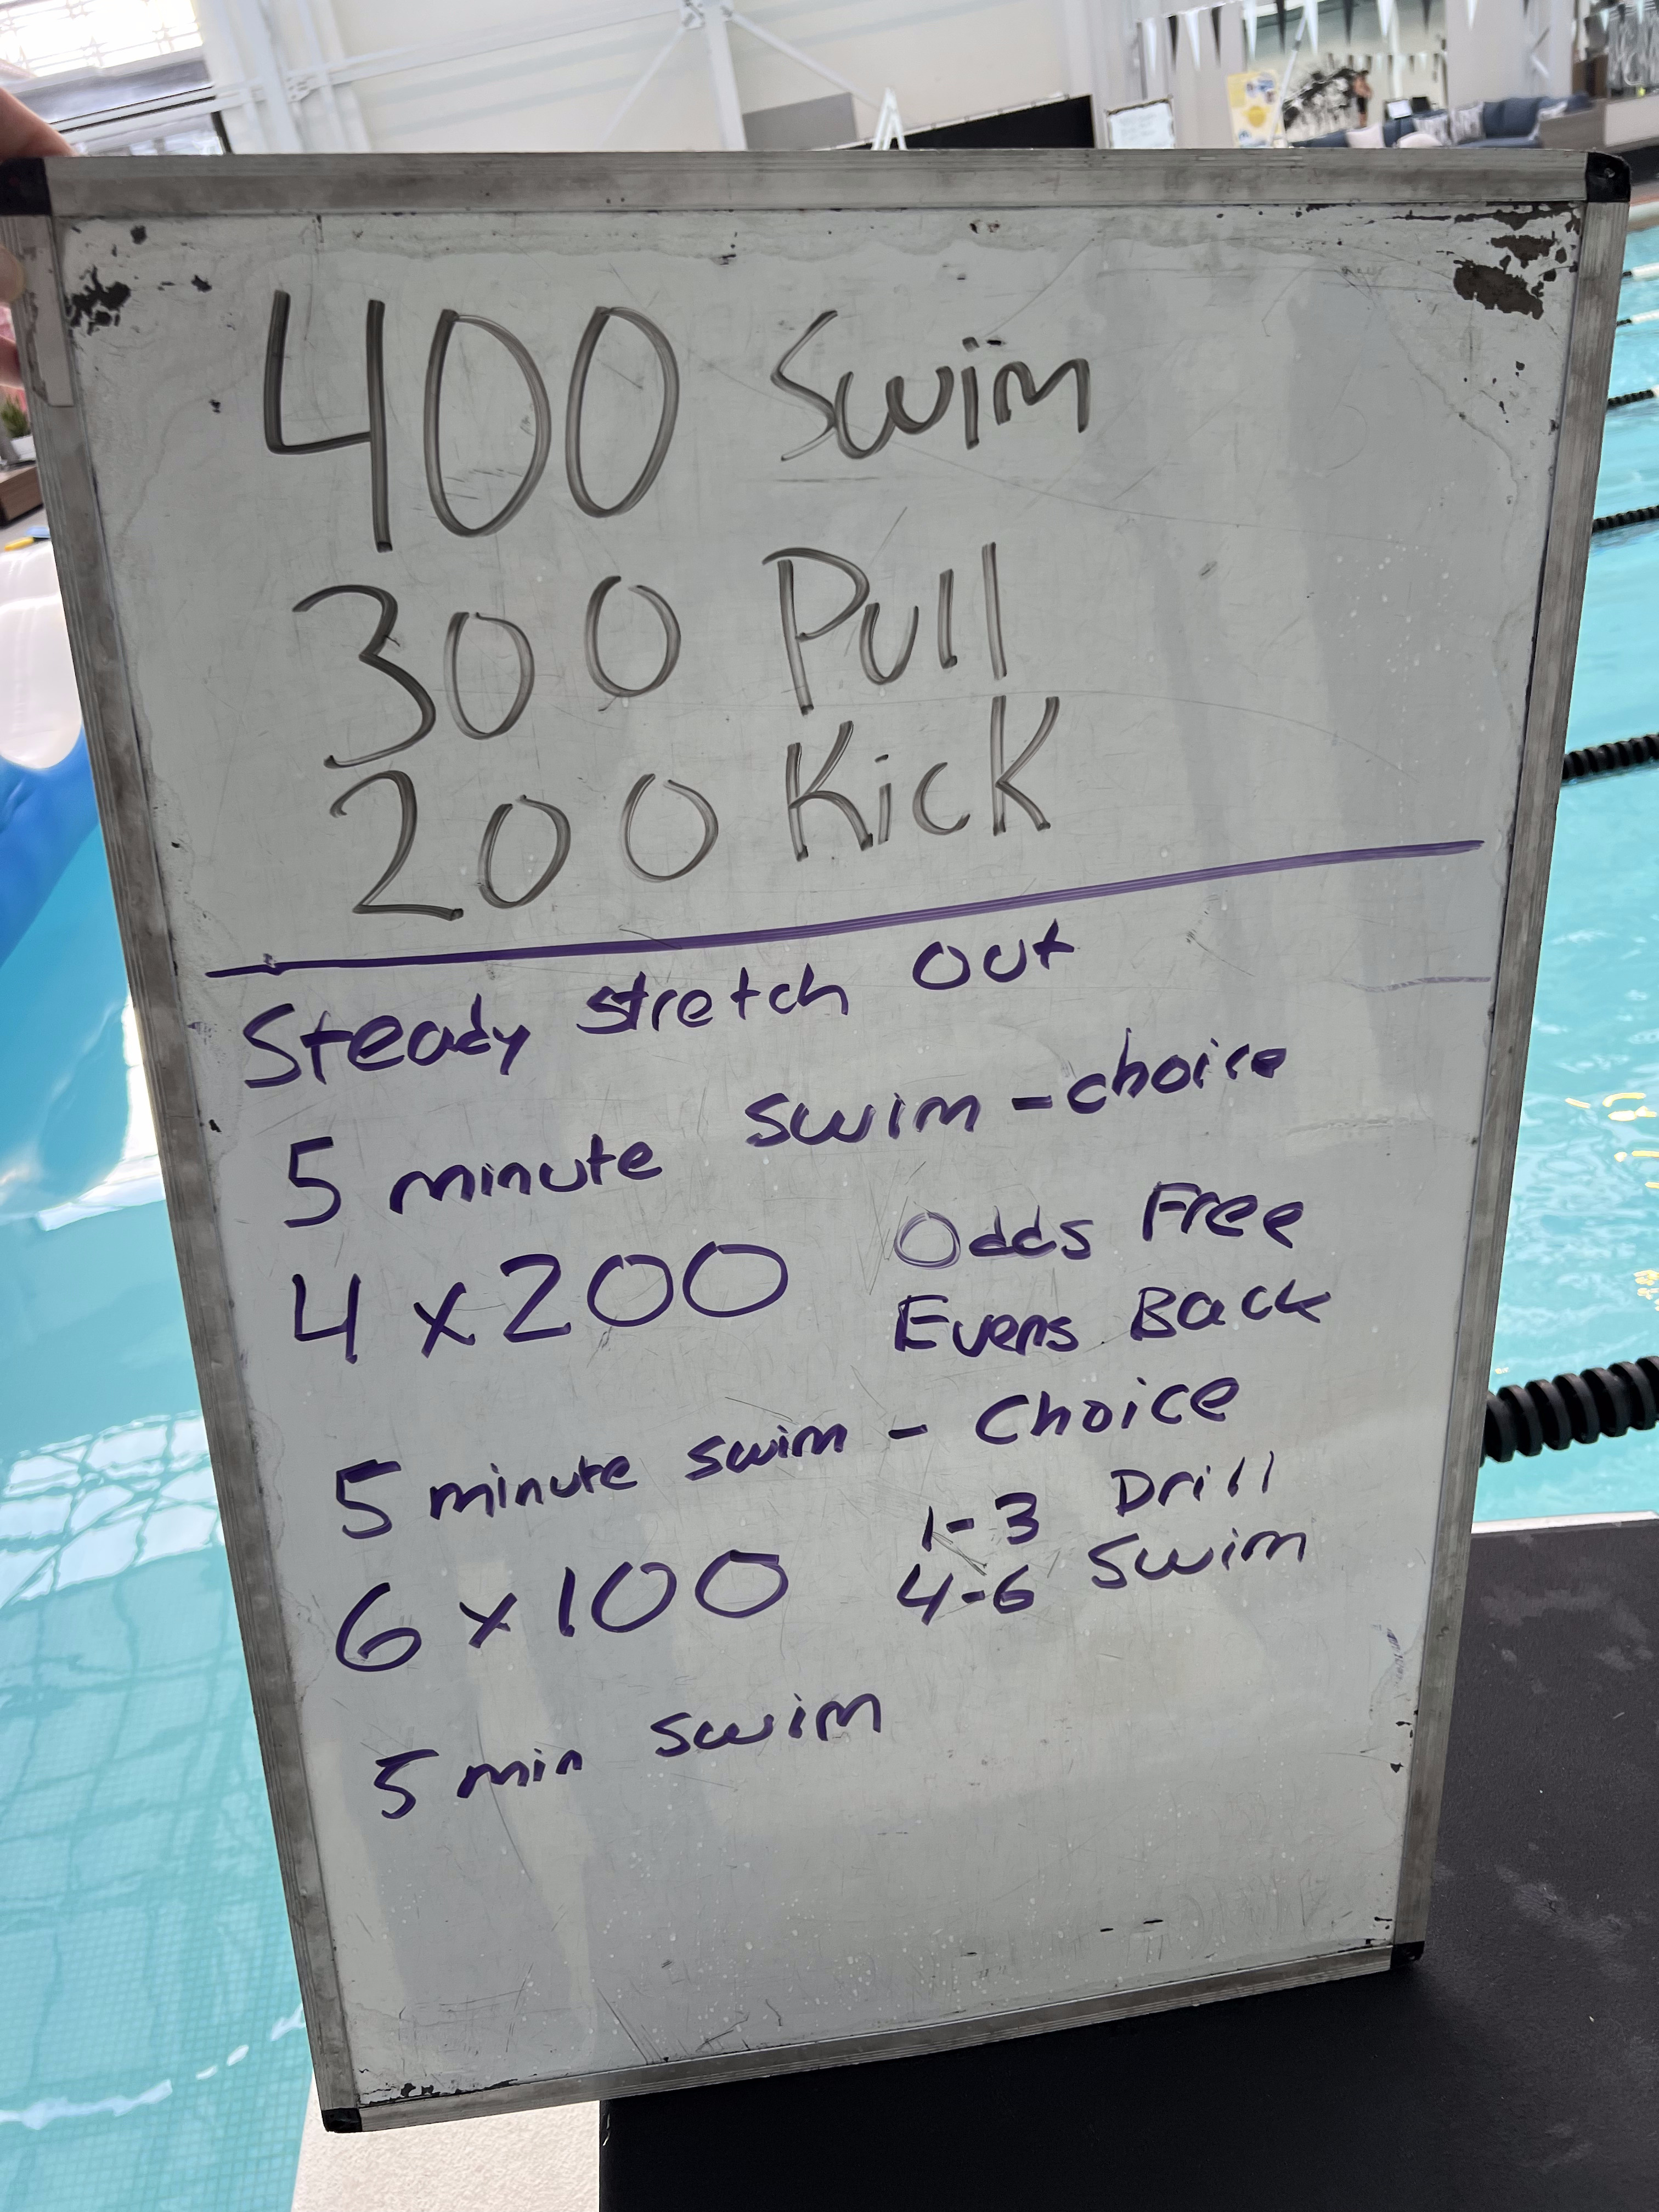 400 Swim
300 Pull
200 Kick
Steady stretch Out
5 minute swim - choice
4 x 200 Odds Free
Evens Back
5 minute swim - Choice
6 x 100 1-3 Drill
4-6 Swim
5 min swim